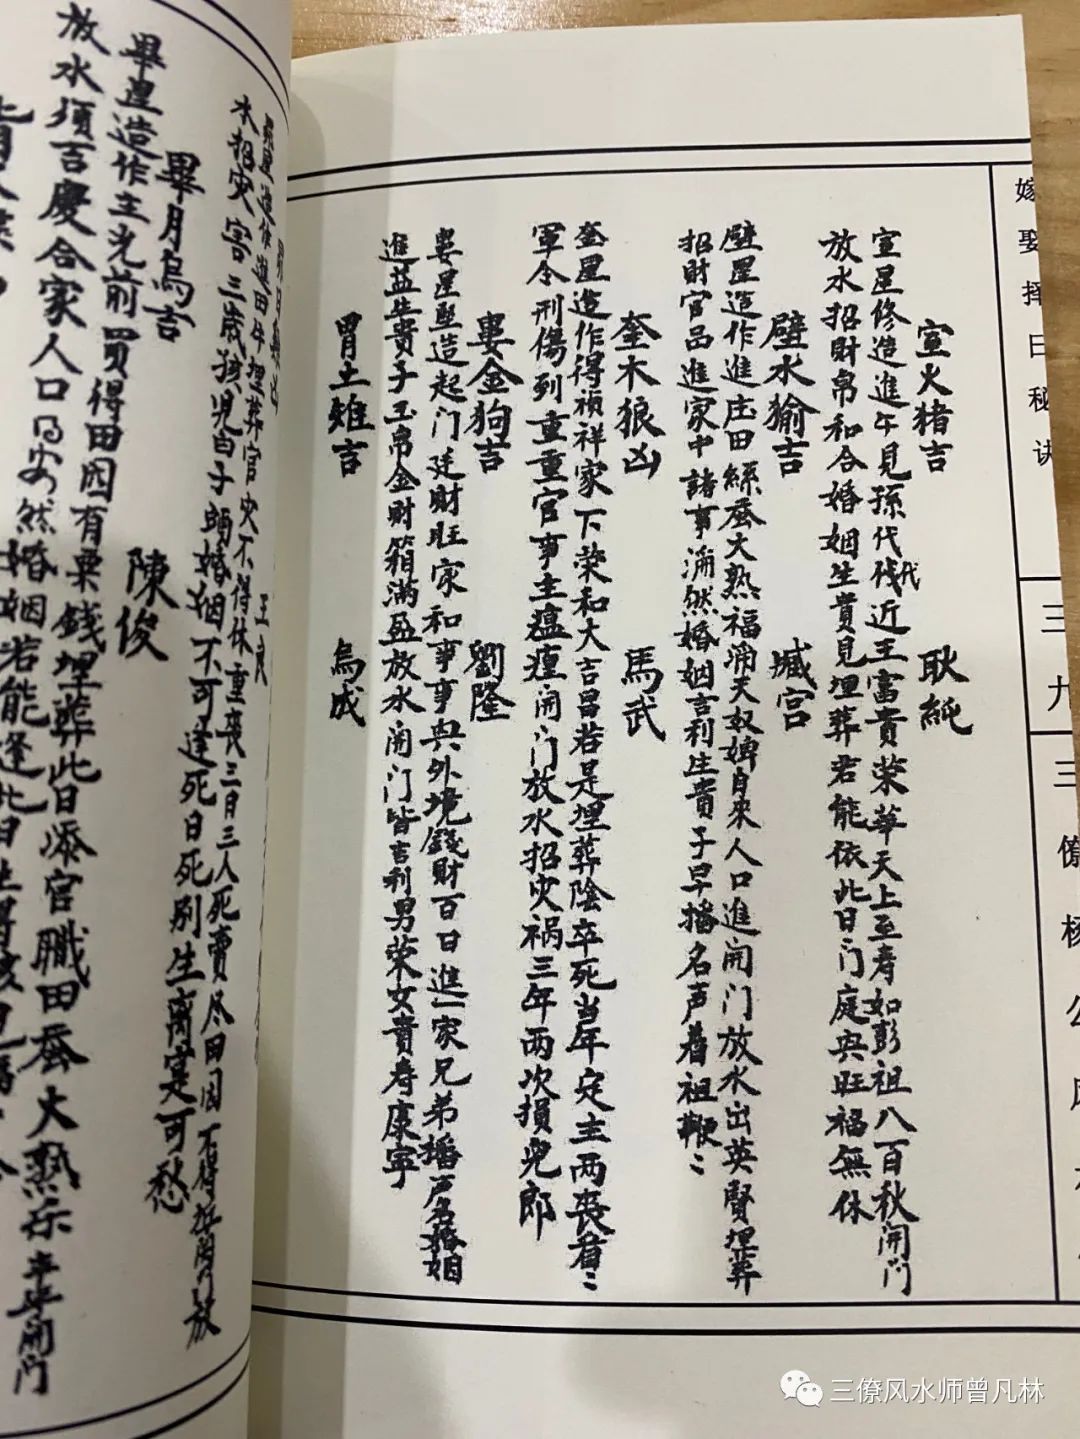 嫁娶择日秘诀
三九
三僚杨公风水
室火猪吉 耿純
室星修造進午見孫代代近王富貴荣華天上至寿如彭祖八百秋開門
放水招財帛和合婚姻生貴見埋葬若能依此日门庭興旺福無休
壁水㺄吉 臧宫
壁星造作進庄田絲蚕大熟福滔天奴婢自來人口進開门放水出英賢埋葬
招財官品進家中諸事滔然婚姻吉利生貴子早播名声着祖鞭〻
奎木狼凶 馬武
奎星造作得禎祥家下荣和大吉昌若是埋葬陰卒死当年定主两喪看〻
軍令刑傷列重重官事主瘟㾮開门放水招灾祸三年两次損児郎
婁金狗吉 劉隆
娄星竪造起门廷財旺家和事事興外境錢財百日進一家兄弟播声名婚姻
進益生貴子玉帛金財箱滿盈放水開门皆吉利男荣女貴寿康宁
胃土雉吉 烏成
王良
昴星造作進田牛埋葬官灾不得休重丧三日三人死賣尽田園
水招灾害三歲孩児白子頭婚姻不可逢死日死别生离寔可愁
畢月烏吉 陳俊
畢星造作主光前買得田园有粟錢埋葬此日添官職田蚕大熟乐丰年開门
放水須吉慶合家人口乃安然婚姻若能逢此日生得孩児福
三僚风水师曾凡林